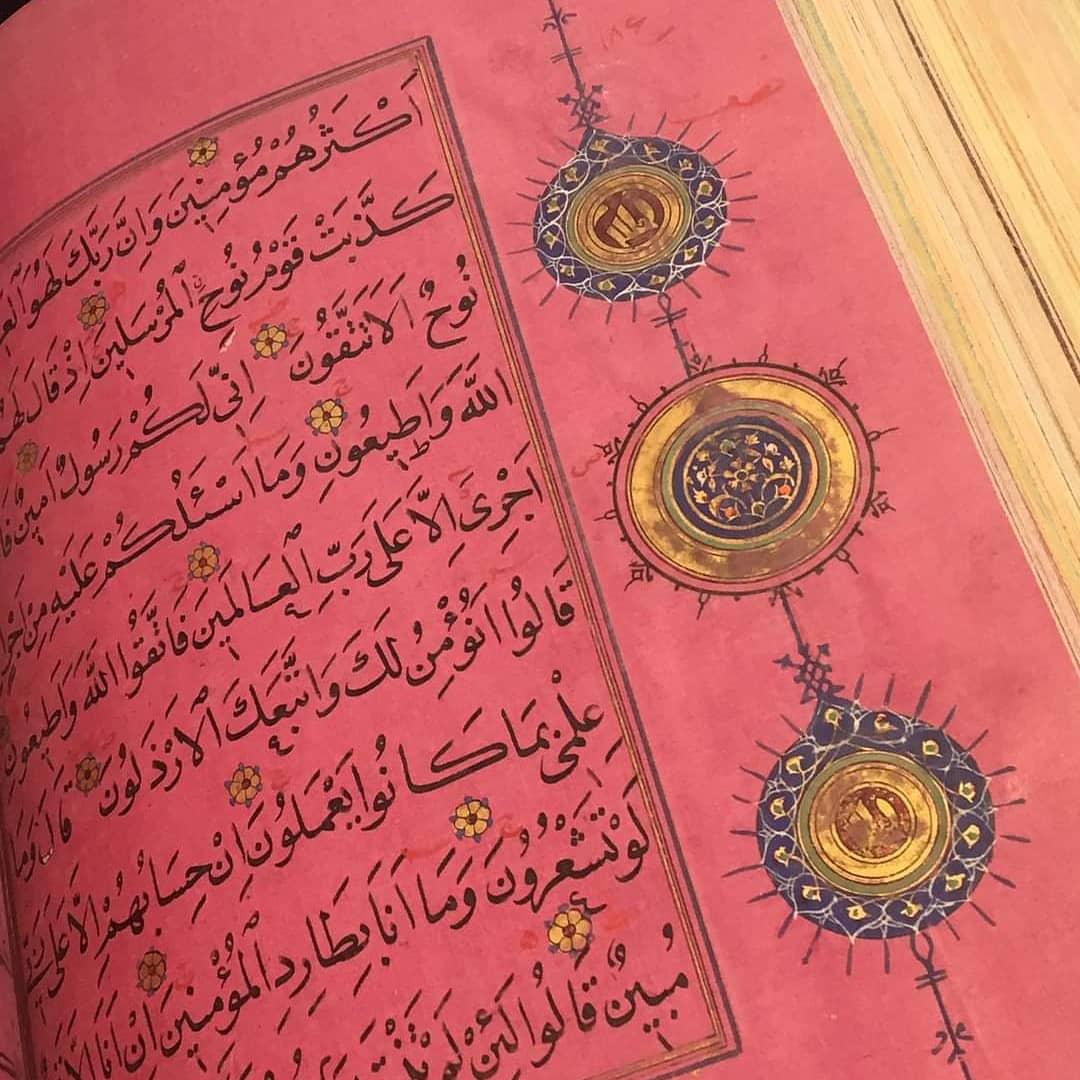 اَكْثَرُهُمْ مُؤْمِنِينَ وَاِنَّ رَبَّكَ لَهُوَ
كَذَّبَتْ قَوْمُ نُوحٍ الْمُرْسَلِينَ اِذْ قَالَ لَهُمْ
نُوحٌ اَلَا تَتَّقُونَ اِنِّى لَكُمْ رَسُولٌ اَمِينٌ
اللَّهَ وَاَطِيعُونِ وَمَا اَسْئَلُكُمْ عَلَيْهِ مِنْ
اَجْرِىَ اِلَّا عَلَى رَبِّ الْعَالَمِينَ فَاتَّقُوا اللَّهَ وَاَطِيعُونِ
قَالُوا اَنُؤْمِنُ لَكَ وَاتَّبَعَكَ الْاَرْذَلُونَ قَالَ وَمَا
عِلْمِى بِمَا كَانُوا يَعْمَلُونَ اِنْ حِسَابُهُمْ اِلَّا عَلَى
لَوْ تَشْعُرُونَ وَمَا اَنَا بِطَارِدِ الْمُؤْمِنِينَ اِنْ اَنَا اِلَّا
مُبِينٌ قَالُوا لَئِنْ لَمْ